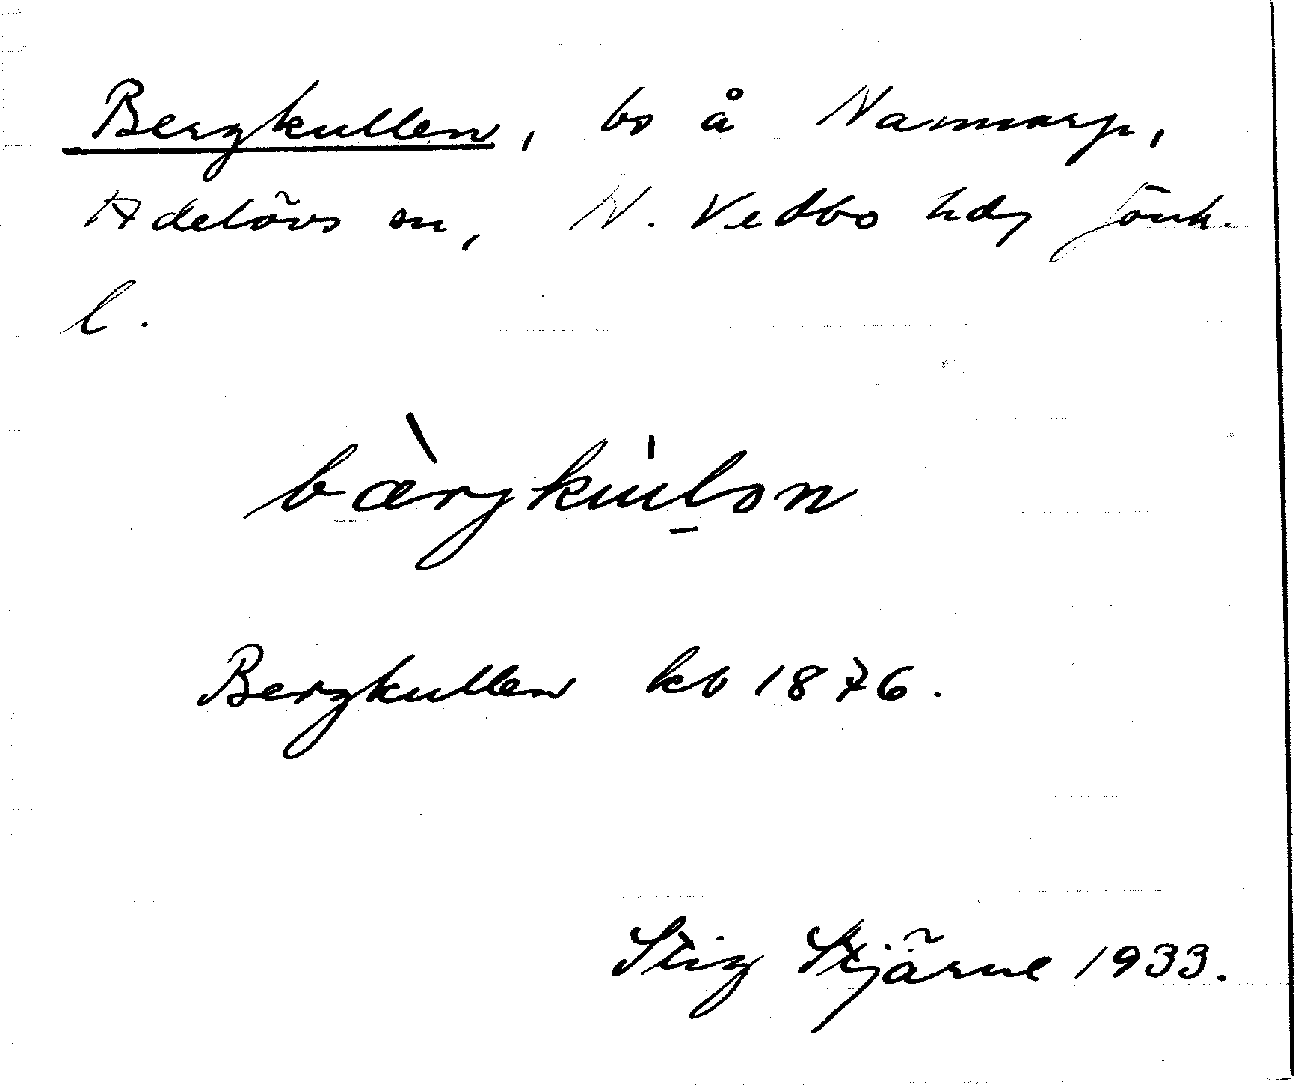 Bergkullen, bo å Nammarp,
Adelövs sn, N. Vedbo hdg Jönk.
l.
bærjkulən
Bergkullen kb 1876.
Stig Stjärne 1933.